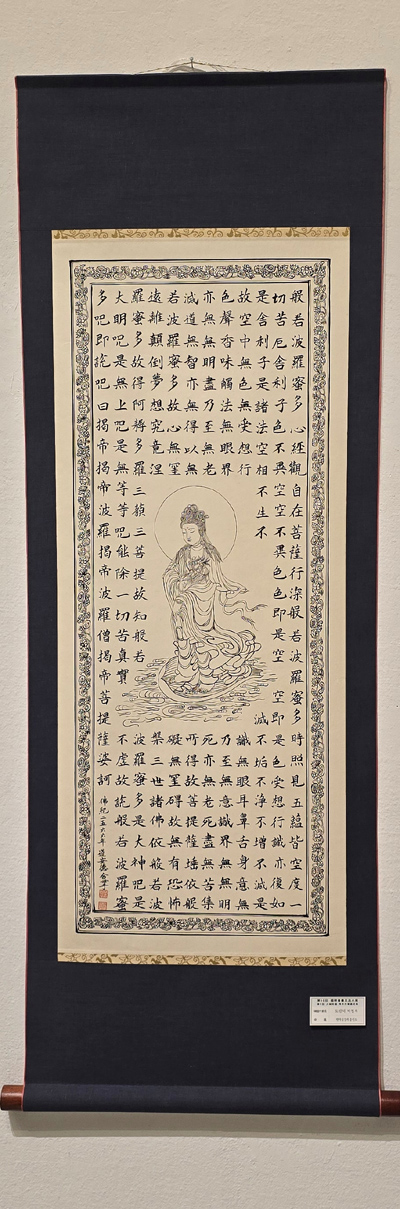 般若波羅蜜多心經觀自在菩薩行深般若波羅蜜多時照見五蘊皆空度一
切苦厄舍利子色不異空空不異色色即是空空即是色受想行識亦復如
是舍利子是諸法空相不生不滅不垢不淨不增不減是
故空中無色無受想行識無眼耳鼻舌身意無
色聲香味觸法無眼界乃至無意識界無無明
亦無無明盡乃至無老死亦無老死盡無苦集
滅道無智亦無得以無所得故菩提薩埵依般
若波羅蜜多故心無罣礙無罣礙故無有恐怖
遠離顛倒夢想究竟涅槃三世諸佛依般若波
羅蜜多故得阿耨多羅三藐三菩提故知般若波羅蜜多是大神呪是
大明呪是無上呪是無等等呪能除一切苦真實不虛故說般若波羅蜜
多呪即說呪曰揭帝揭帝波羅揭帝波羅僧揭帝菩提薩婆訶
佛紀二五六六年